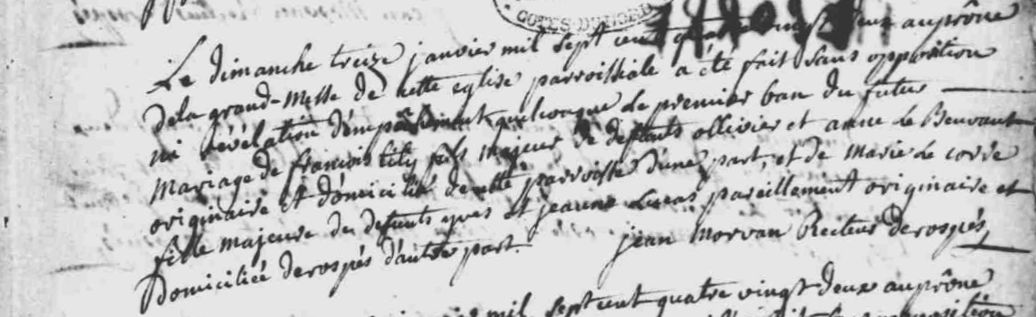 COTES-DU-NORD
Le dimanche treize janvier mil sept cent quatre vingt deux au prône
de la grand-messe de cette eglise parroissiale a été fait sans opposition
ni révélation d'empêchement quelconque le premier ban du futur
mariage de françois fily fils majeur de defunts ollivier et anne Le Beuvant
originaire et domicilié de cette parroisse d'une part, et de marie Le corre
fille majeure de defunts yves et jeanne Lucas pareillement originaire et
domiciliée de rospés d'autre part. jean morvan Recteur de rospés
mil sept cent quatre vingt deux au prône
opposition